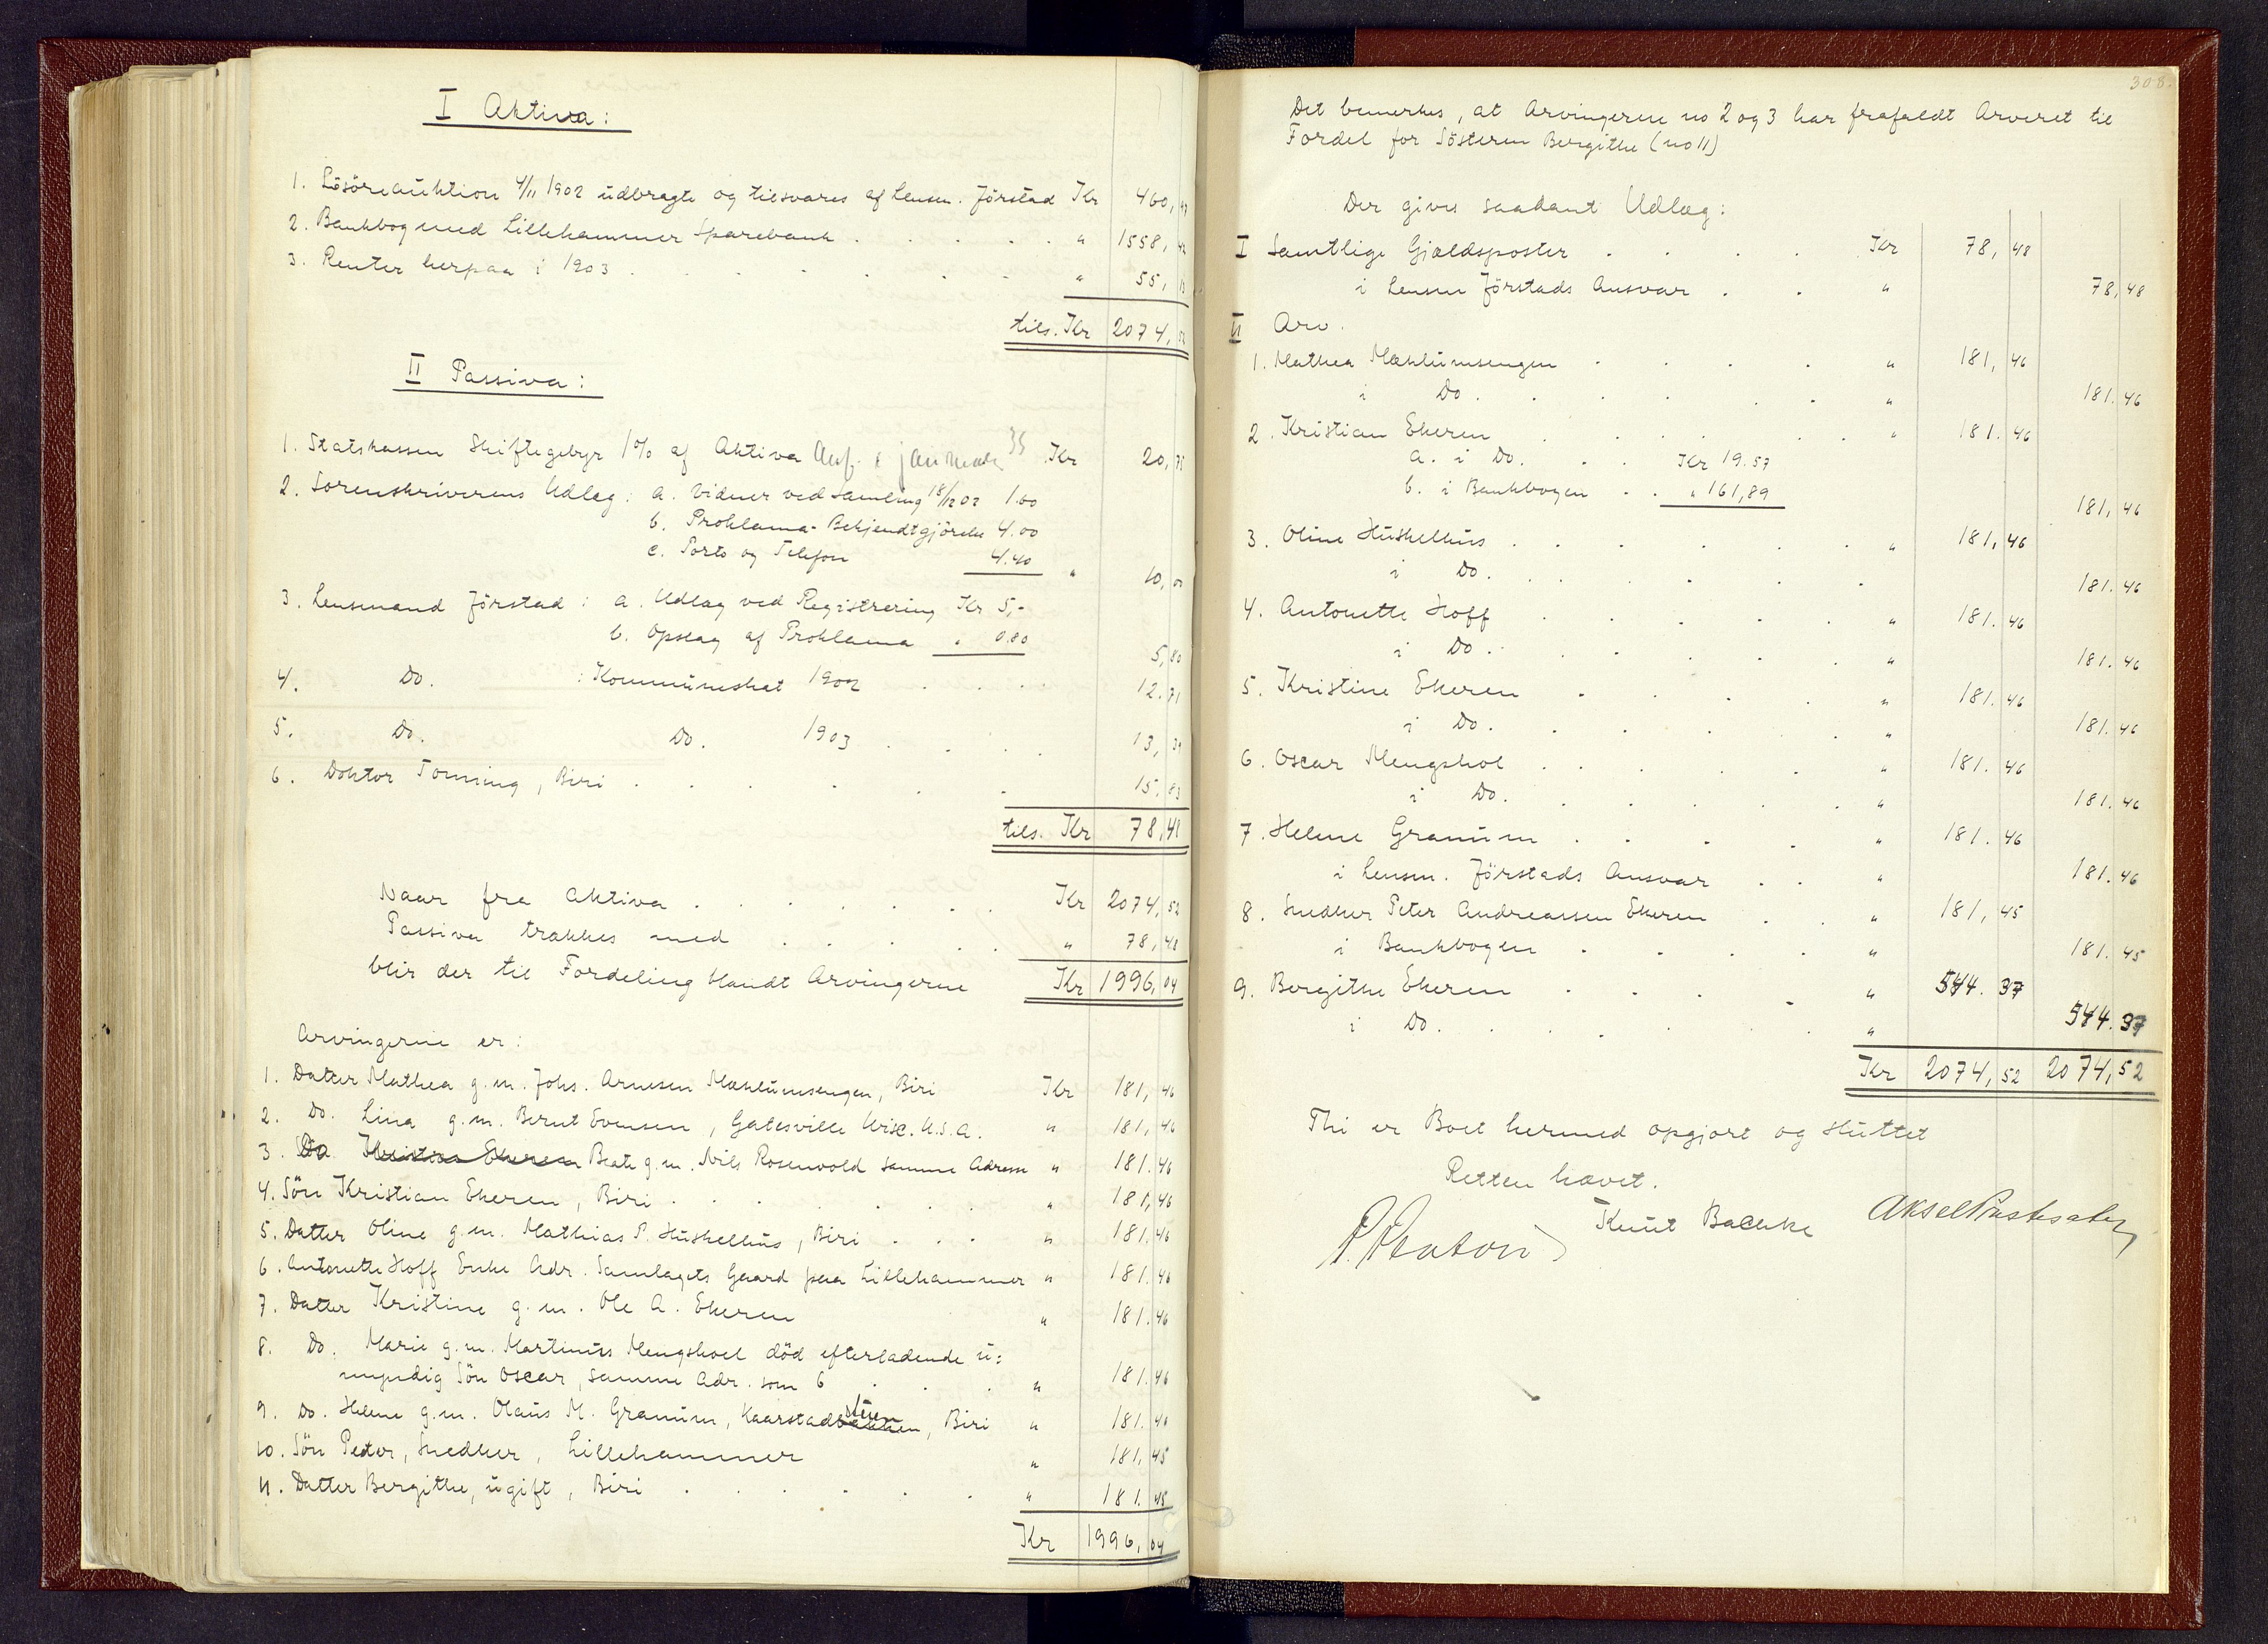 I Aktiva:
1. Lösöreauktion 4/11 1902 udbragte og tilsvares af Lensm. Jörstad Kr 460,97
2. Bankbog med Lillehammer Sparebank . . . . . " 1558,42
3. Renter herpaa i 1903 . . . . . . " 55,13
tils. Kr 2074,52
II Passiva:
1. Statskassen Skiftegebyr 1% af Aktiva Kr 20,75
2. Sorenskriverens Udlæg: a. Vidner ved Samling 18/12 02 1.60
b. Proklama-Bekjendtgjörelse 4.00
c. Porto og Telefon 4.40 " 10,00
3. Lensmand Jörstad: a. Udlæg ved Registrering Kr 5,-
b. Opslag af Proklama " 0.80 5,80
4. Do. : Kommuneskat 1902 . . . . 12.71
5. Do. Do. 1903 . . . . 13,39
6. Doktor Tonning, Biri . . . . . . 15.83
tils. Kr 78,48
Naar fra Aktiva . . . . . . . Kr 2074,52
Passiva trækkes med . . . . . " 78,48
blir der til Fordeling blandt Arvingerne Kr 1996,04
Arvingerne er:
1. Datter Mathea g.m. Johs. Arnesen Mæhlumsengen, Biri Kr 181,46
2. Do. Lina g.m. Bernt Evensen, Galesville Wisc. U.S.A. " 181,46
3. Do Kristine Ekeren Beate g.m. Nils Rosenvold samme Adresse " 181.46
4. Sön Kristian Ekeren, Biri . . . . . . " 181,46
5. Datter Oline g.m. Mathias P. Huskelhus, Biri . . . " 181.46
6. Antonette Hoff Enke Adr. Samlagets Gaard paa Lillehammer " 181.46
7. Datter Kristine g.m. Ole A. Ekeren " 181.46
8. Do. Marie g.m. Martinus Mengshoel död efterladende u:
myndig Sön Oscar, samme Adr. som 6 . . . " 181.46
9. Do. Helene g.m. Olaus M. Granum, Kaarstadbakken, Biri " 181.46
10. Sön Peder, Snedker, Lillehammer " 181,45
11. Datter Bergithe, ugift, Biri . . . . . . " 181.45
Kr 1996,04
308.
Det bemerkes, at Arvingerne no 2 og 3 har frafaldt Arveret til
Fordel for Sösteren Bergithe (no 11)
Der gives saadant Udlæg:
I Samtlige Gjældsposter . . . . Kr 78,48
i Lensm Jörstads Ansvar . . " 78,48
II Arv.
1. Mathea Mæhlumsengen . . . . " 181,46
i Do. . . . . . " 181.46
2. Kristian Ekeren . . . . . . " 181.46
a. i Do. . . Kr 19.57
b. i Bankbogen . . " 161,89 181,46
3. Oline Huskelhus . . . . . . " 181,46
i Do. . . . . . 181.46
4. Antonette Hoff . . . . . " 181.46
i Do. . . . . . " 181.46
5. Kristine Ekeren . . . . " 181.46
i Do. . . . . . " 181.46
6. Oscar Mengshol . . . . . " 181.46
i Do. . . . . . " 181.46
7. Helene Granum . . . . " 181.46
i Lensm. Jörstads Ansvar . . " 181.46
8. Snedker Peter Andreassen Ekeren . . " 181,45
i Bankbogen . . . . " 181.45
9. Bergithe Ekeren . . . . " 544.37
i Do. . . . . . " 544.37
Kr 2074,52 2074,52
Thi er Boet hermed opgjort og sluttet
Retten hævet.
Knut Backe